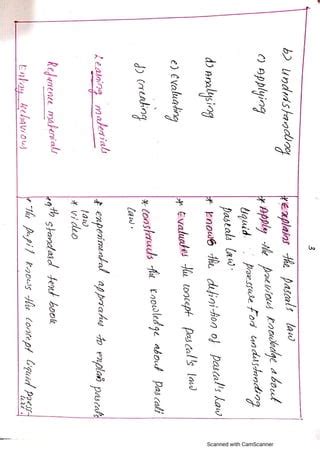 3
b) Understanding
* Explains the pascal's law
c) Applying
* Apply the previous knowledge about
liquid pressure for understanding
pascals law.
d) Analysing
* Knows the definition of pascal's law
e) Evaluating
* Evaluates the concept pascal's law
d) Creating
* constructs the knowledge about pascal's
law.
Learning materials
* experimental apparatus to explain pascal's
law
* video
Reference materials
* 9th standard text book
Entry Behaviour
* The pupil knows the concept liquid press-
Scanned with CamScanner